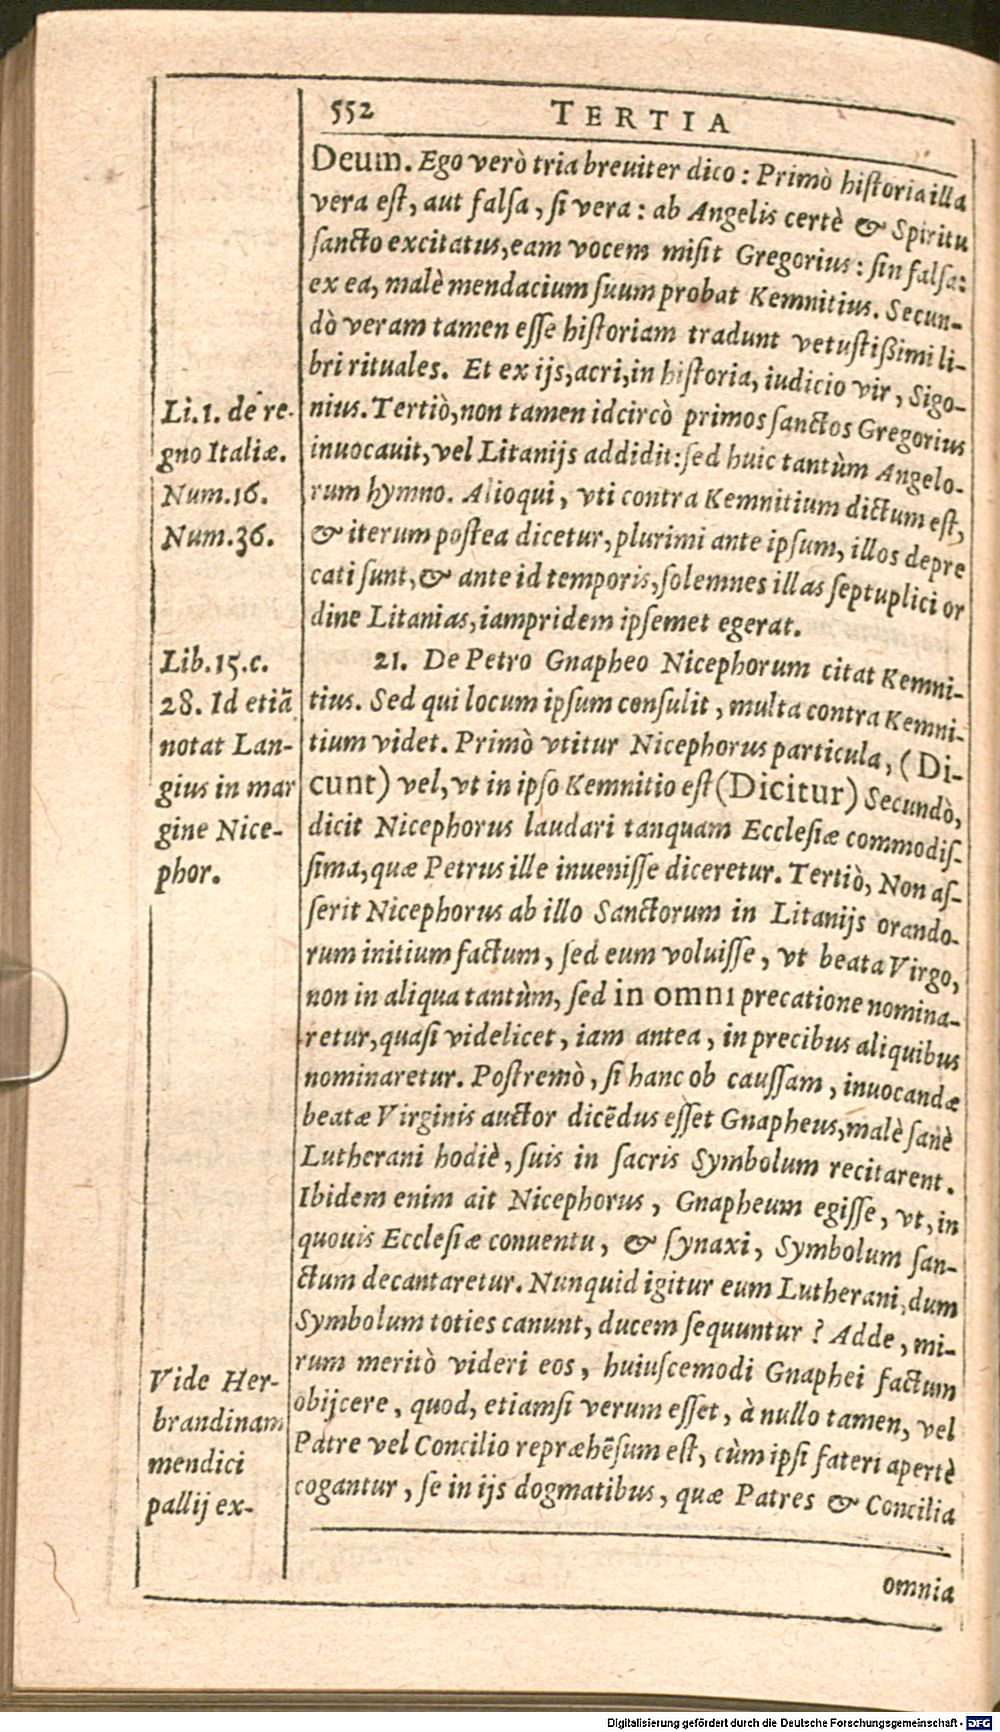 552 TERTIA
Deum. Ego verò tria breuiter dico: Primò historia illa
vera est, aut falsa, si vera: ab Angelis certè & Spiritu
sancto excitatus, eam vocem misit Gregorius: sin falsa:
ex ea, malè mendacium suum probat Kemnitius. Secun-
dò veram tamen esse historiam tradunt vetustißimi li-
bri rituales. Et ex ijs, acri, in historia, iudicio vir, Sigo-
nius. Tertiò, non tamen idcircò primos sanctos Gregorius
inuocauit, vel Litanijs addidit: sed huic tantùm Angelo-
rum hymno. Alioqui, vti contra Kemnitium dictum est,
& iterum postea dicetur, plurimi ante ipsum, illos depre
cati sunt, & ante id temporis, solemnes illas septuplici or
dine Litanias, iampridem ipsemet egerat.
Li. 1. de re-
gno Italiæ.
Num. 16.
Num. 36.
21. De Petro Gnapheo Nicephorum citat Kemni-
tius. Sed qui locum ipsum consulit, multa contra Kemni-
tium videt. Primò vtitur Nicephorus particula, (Di-
cunt) vel, vt in ipso Kemnitio est (Dicitur) Secundò,
dicit Nicephorus laudari tanquam Ecclesiæ commodis-
sima, quæ Petrus ille inuenisse diceretur. Tertiò, Non as-
serit Nicephorus ab illo Sanctorum in Litanijs orando-
rum initium factum, sed eum voluisse, vt beata Virgo,
non in aliqua tantùm, sed in omni precatione nomina-
retur, quasi videlicet, iam antea, in precibus aliquibus
nominaretur. Postremò, si hanc ob caussam, inuocandæ
beatæ Virginis auctor dicẽdus esset Gnapheus, malè sanè
Lutherani hodiè, suis in sacris Symbolum recitarent.
Ibidem enim ait Nicephorus, Gnapheum egisse, vt, in
quouis Ecclesiæ conuentu, & synaxi, Symbolum san-
ctum decantaretur. Nunquid igitur eum Lutherani, dum
Symbolum toties canunt, ducem sequuntur? Adde, mi-
rum meritò videri eos, huiuscemodi Gnaphei factum
obijcere, quod, etiamsi verum esset, à nullo tamen, vel
Patre vel Concilio repræhẽsum est, cùm ipsi fateri apertè
cogantur, se in ijs dogmatibus, quæ Patres & Concilia
Lib. 15. c.
28. Id etiã
notat Lan-
gius in mar
gine Nice-
phor.
Vide Her-
brandinam
mendici
pallij ex-
omnia
Digitalisierung gefördert durch die Deutsche Forschungsgemeinschaft - DFG